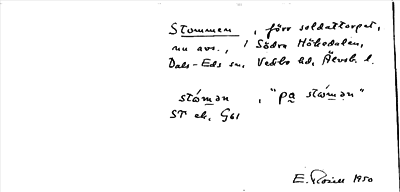 Stommen, förr soldattorpet,
nu avs., i Södra Hökedalen,
Dals-Eds sn, Vedbo hd, Älvsb. l.
stómən, "pa stómən"
ST ek. G61
E. Rosell 1950